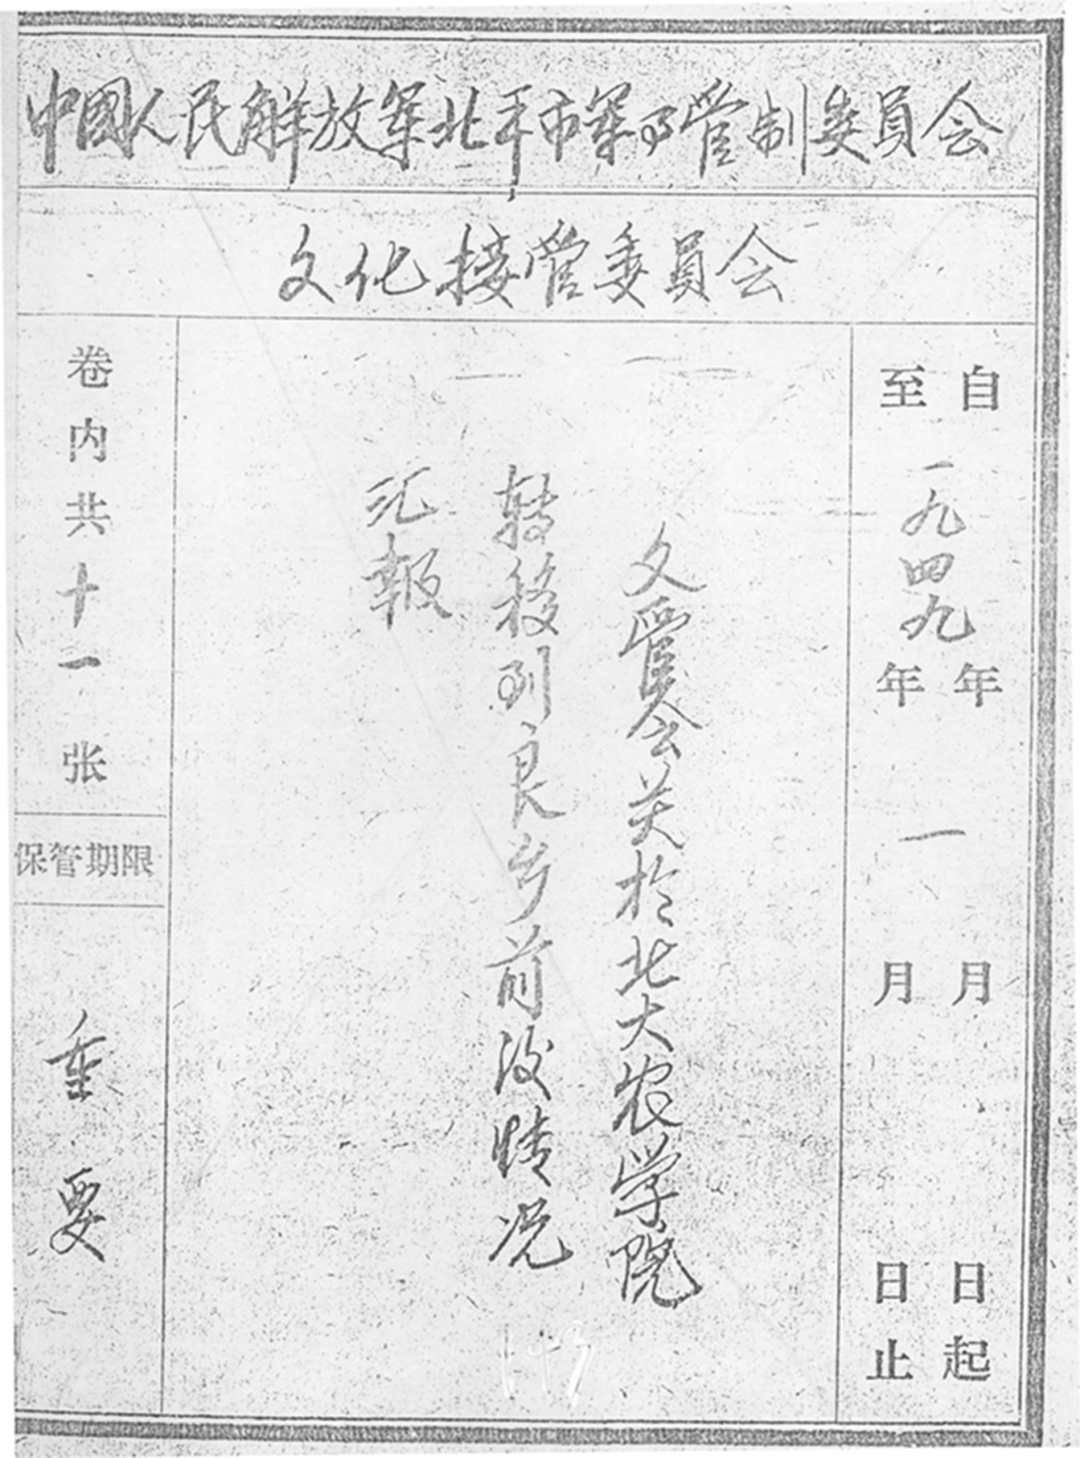 中國人民解放军北平市军事管制委員会
文化接管委員会
自 年 月 日起
至一九四九年一月 日止
文管会关於北大农学院
转移到良乡前没情况
汇報
卷内共十一张
保管期限
重要
143